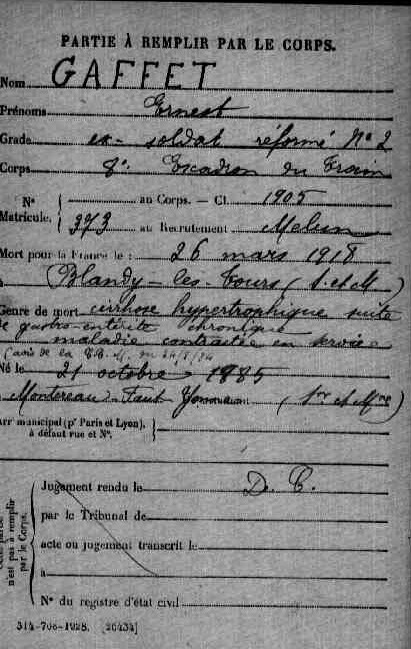 PARTIE À REMPLIR PAR LE CORPS.
Nom GAFFET
Prénoms Ernest
Grade ex-soldat réformé N° 2
Corps 8e Escadron du Train
N° Matricule. { au Corps. — Cl. 1905
373 au Recrutement Melun
Mort pour la France le : 26 mars 1918
à Blandy-les-Tours (S. et M.)
Genre de mort cirrhose hypertrophique suite
de gastro-entérite chronique
maladie contractée en service
(avis de la
Né le 21 octobre 1885
Montereau-Faut-Yonne (S. et Mne)
Arr' municipal (pr Paris et Lyon),
à défaut rue et N°.
Cette partie n'est pas à remplir par le Corps.
Jugement rendu le D. C.
par le Tribunal de
acte ou jugement transcrit le
à
N° du registre d'état civil
314-706-1928. [26434]